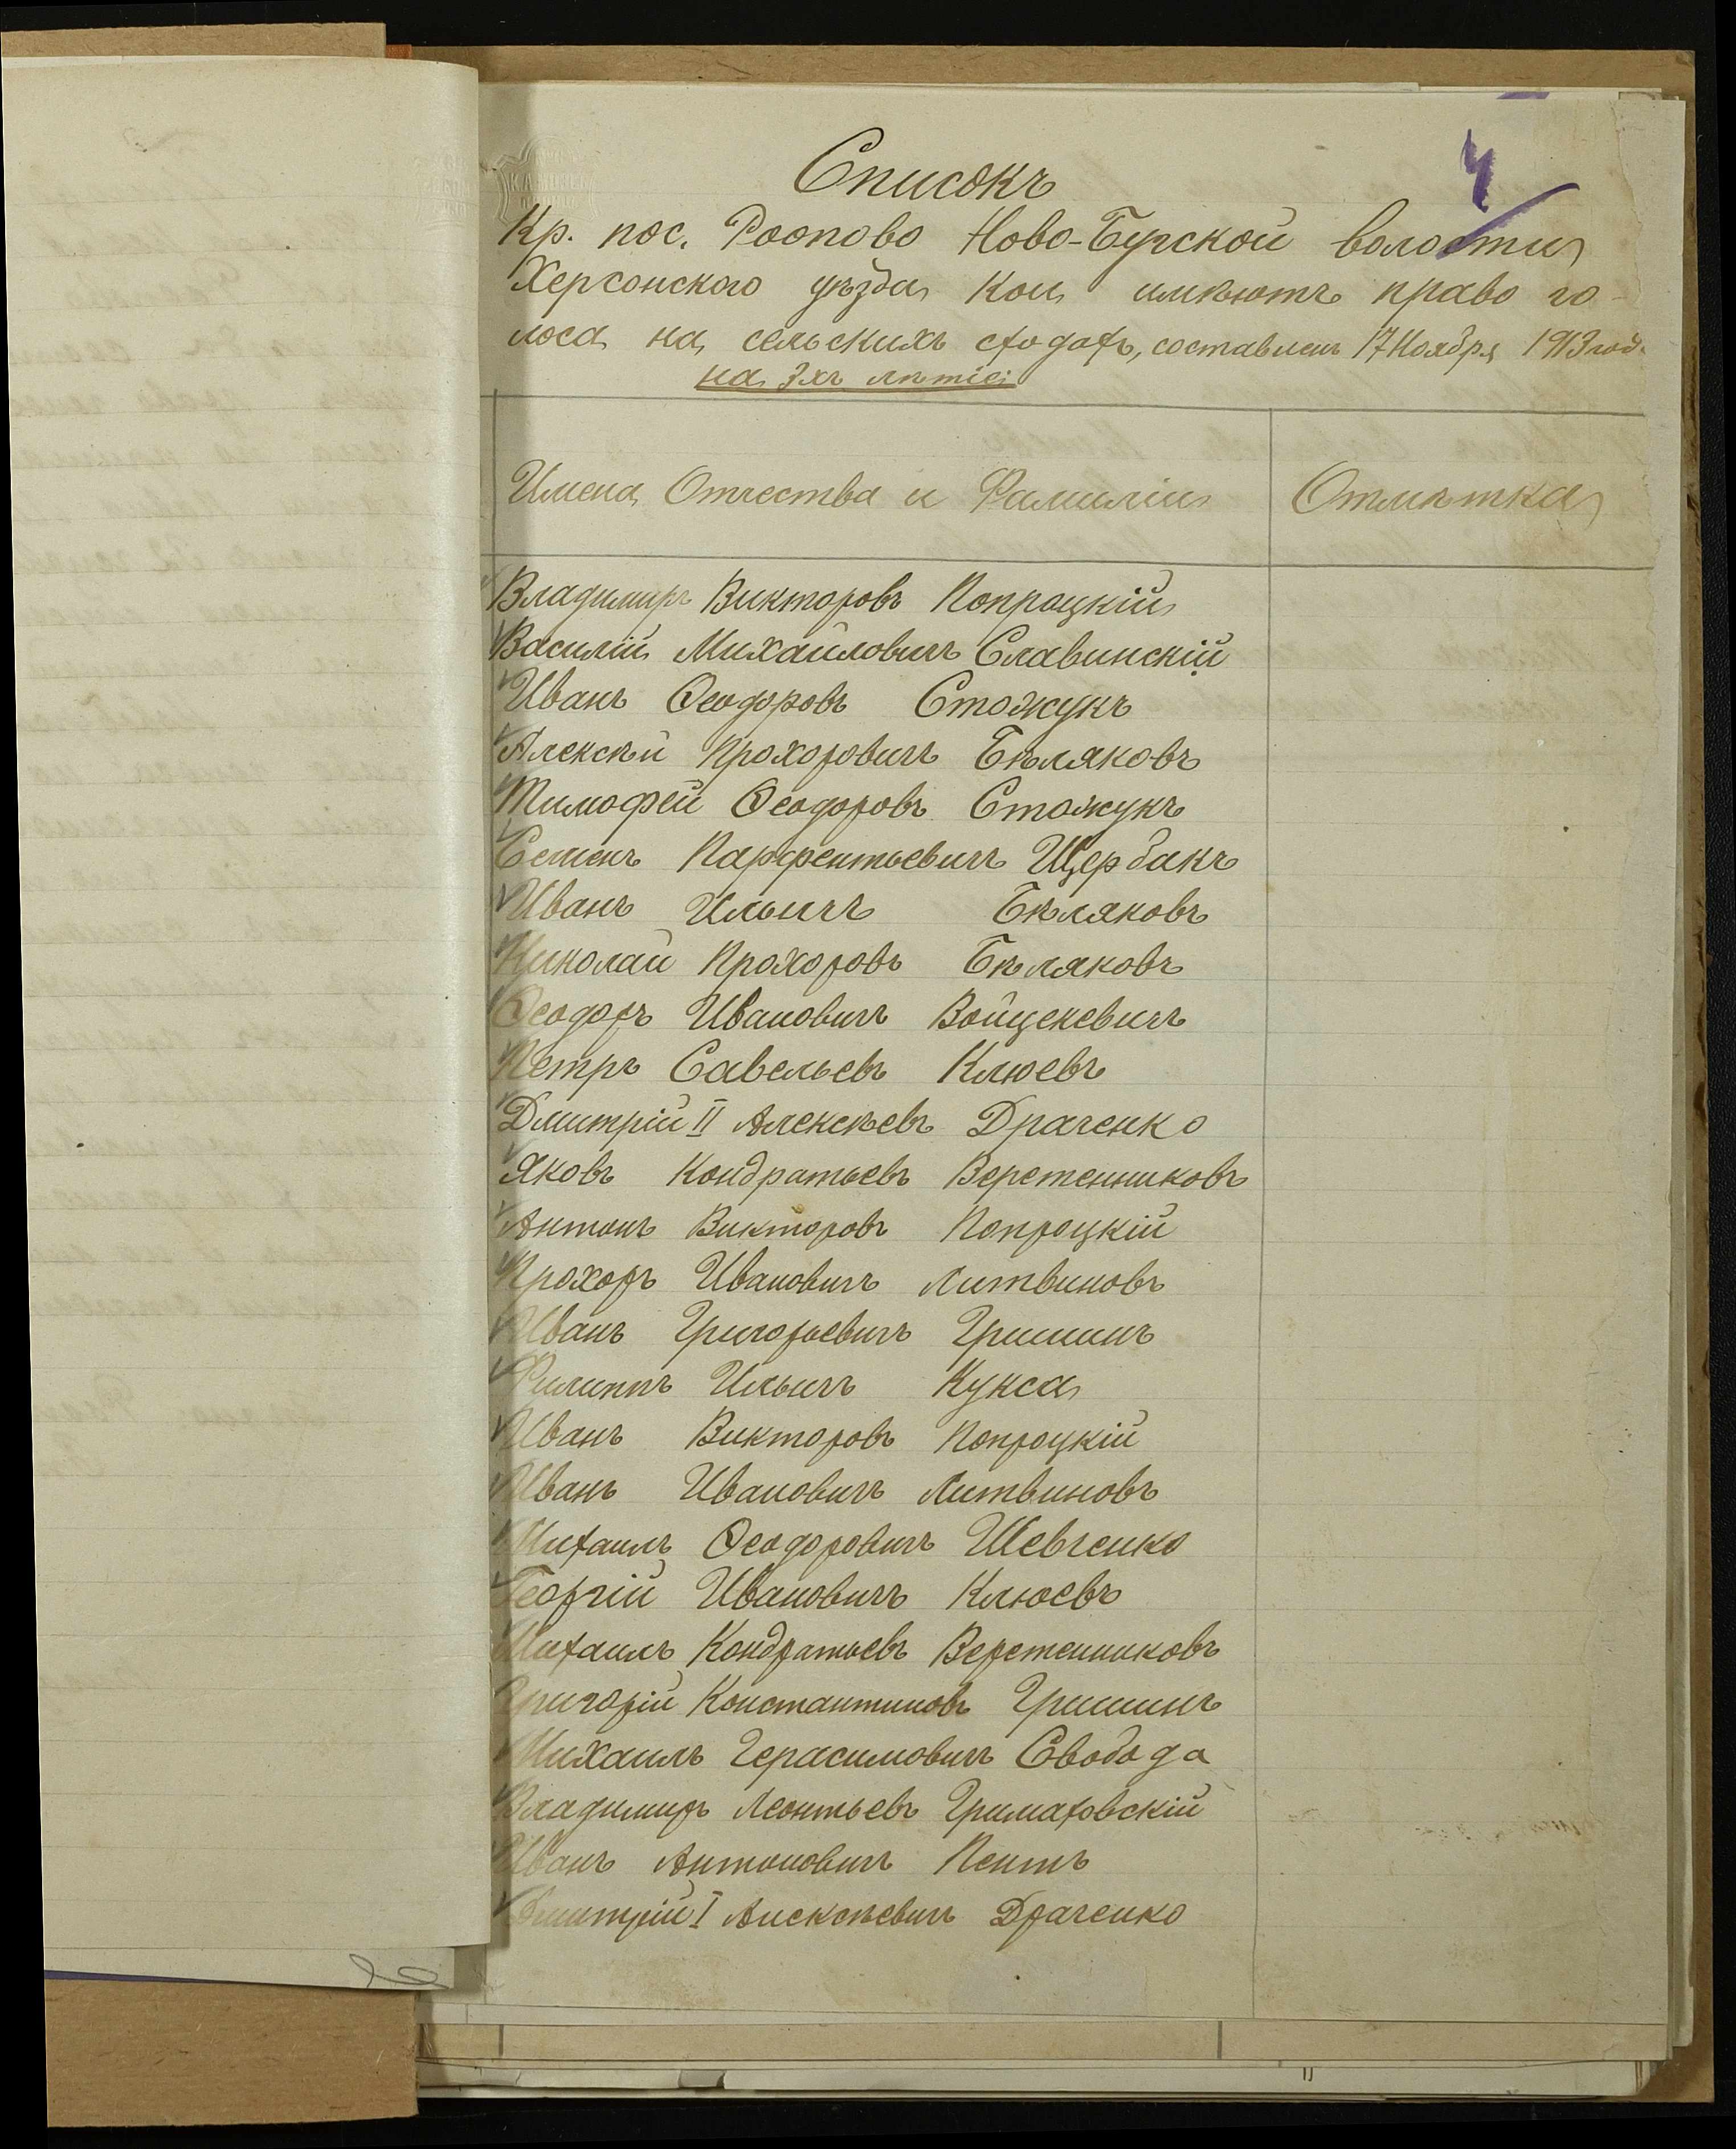 4
Списокъ
Кр. пос. Роопово Ново-Бугской волости
Херсонского уѣзда кои имѣютъ право го-
лоса на сельскихъ сходахъ, составленъ 17 Ноября 1913 года
на 3хъ лѣтіе:
Имена Отчества и Фамиліи Отмѣтка
Владимиръ Викторовъ Попроцкій
Василій Михайловичъ Славинскій
Иванъ Ѳеодоровъ Стожукъ
Алексѣй Прохоровичъ Бѣляковъ
Тимофей Ѳеодоровъ Стожукъ
Семенъ Парфентьевичъ Щербакъ
Иванъ Ильичъ Бѣляковъ
Николай Прохоровъ Бѣляковъ
Ѳеодоръ Ивановичъ Войцехевичъ
Петръ Савельевъ Клюевъ
Дмитрій II Алексѣевъ Драченко
Яковъ Кондратьевъ Веретенниковъ
Антонъ Викторовъ Попроцкій
Прохоръ Ивановичъ Литвиновъ
Иванъ Григорьевичъ Гришинъ
Филиппъ Ильичъ Кукса
Иванъ Викторовъ Попроцкій
Иванъ Ивановичъ Литвиновъ
Михаилъ Ѳеодоровичъ Шевченко
Георгій Ивановичъ Клюевъ
Михаилъ Кондратьевъ Веретенниковъ
Григорій Константиновъ Гришинъ
Михаилъ Герасимовичъ Свобода
Владимиръ Леонтьевъ Гримаховскій
Иванъ Антоновичъ Пентъ
Дмитрій I Алексѣевичъ Драченко